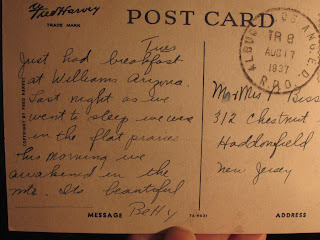 Fred Harvey
TRADE MARK
POST CARD
ALBUQ. & LOS ANG.
TR 8
AUG 17
1937
R.P.O.
Tues
Just had breakfast
at Williams Arizona.
Last night as we
went to sleep we were
in the flat prairie
this morning we
awakened in the
mts. Its beautiful
Betty
Mr + Mrs
312 Chestnut
Haddonfield
New Jersey
COPYRIGHT BY FRED HARVEY
MESSAGE
ADDRESS